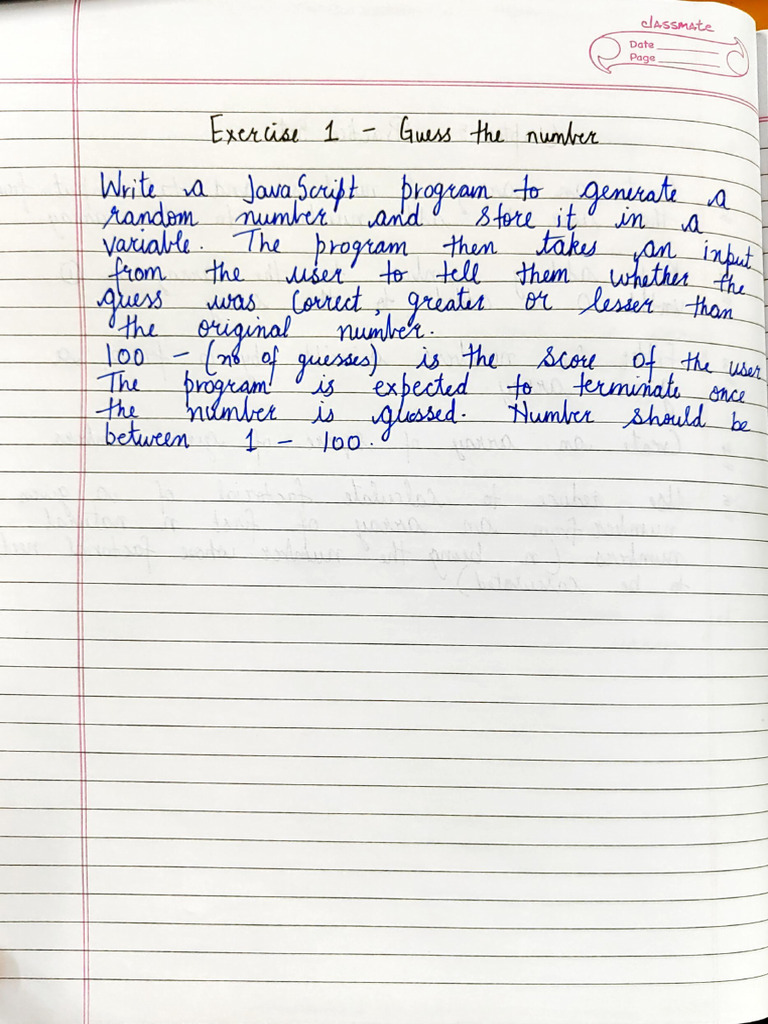 classmate
Date
Page
Exercise 1 - Guess the number
Write a JavaScript program to generate a
random number and store it in a
variable. The program then takes an input
from the user to tell them whether the
guess was correct, greater or lesser than
the original number.
100 - (no of guesses) is the score of the user
The program is expected to terminate once
the number is guessed. Number should be
between 1 - 100.